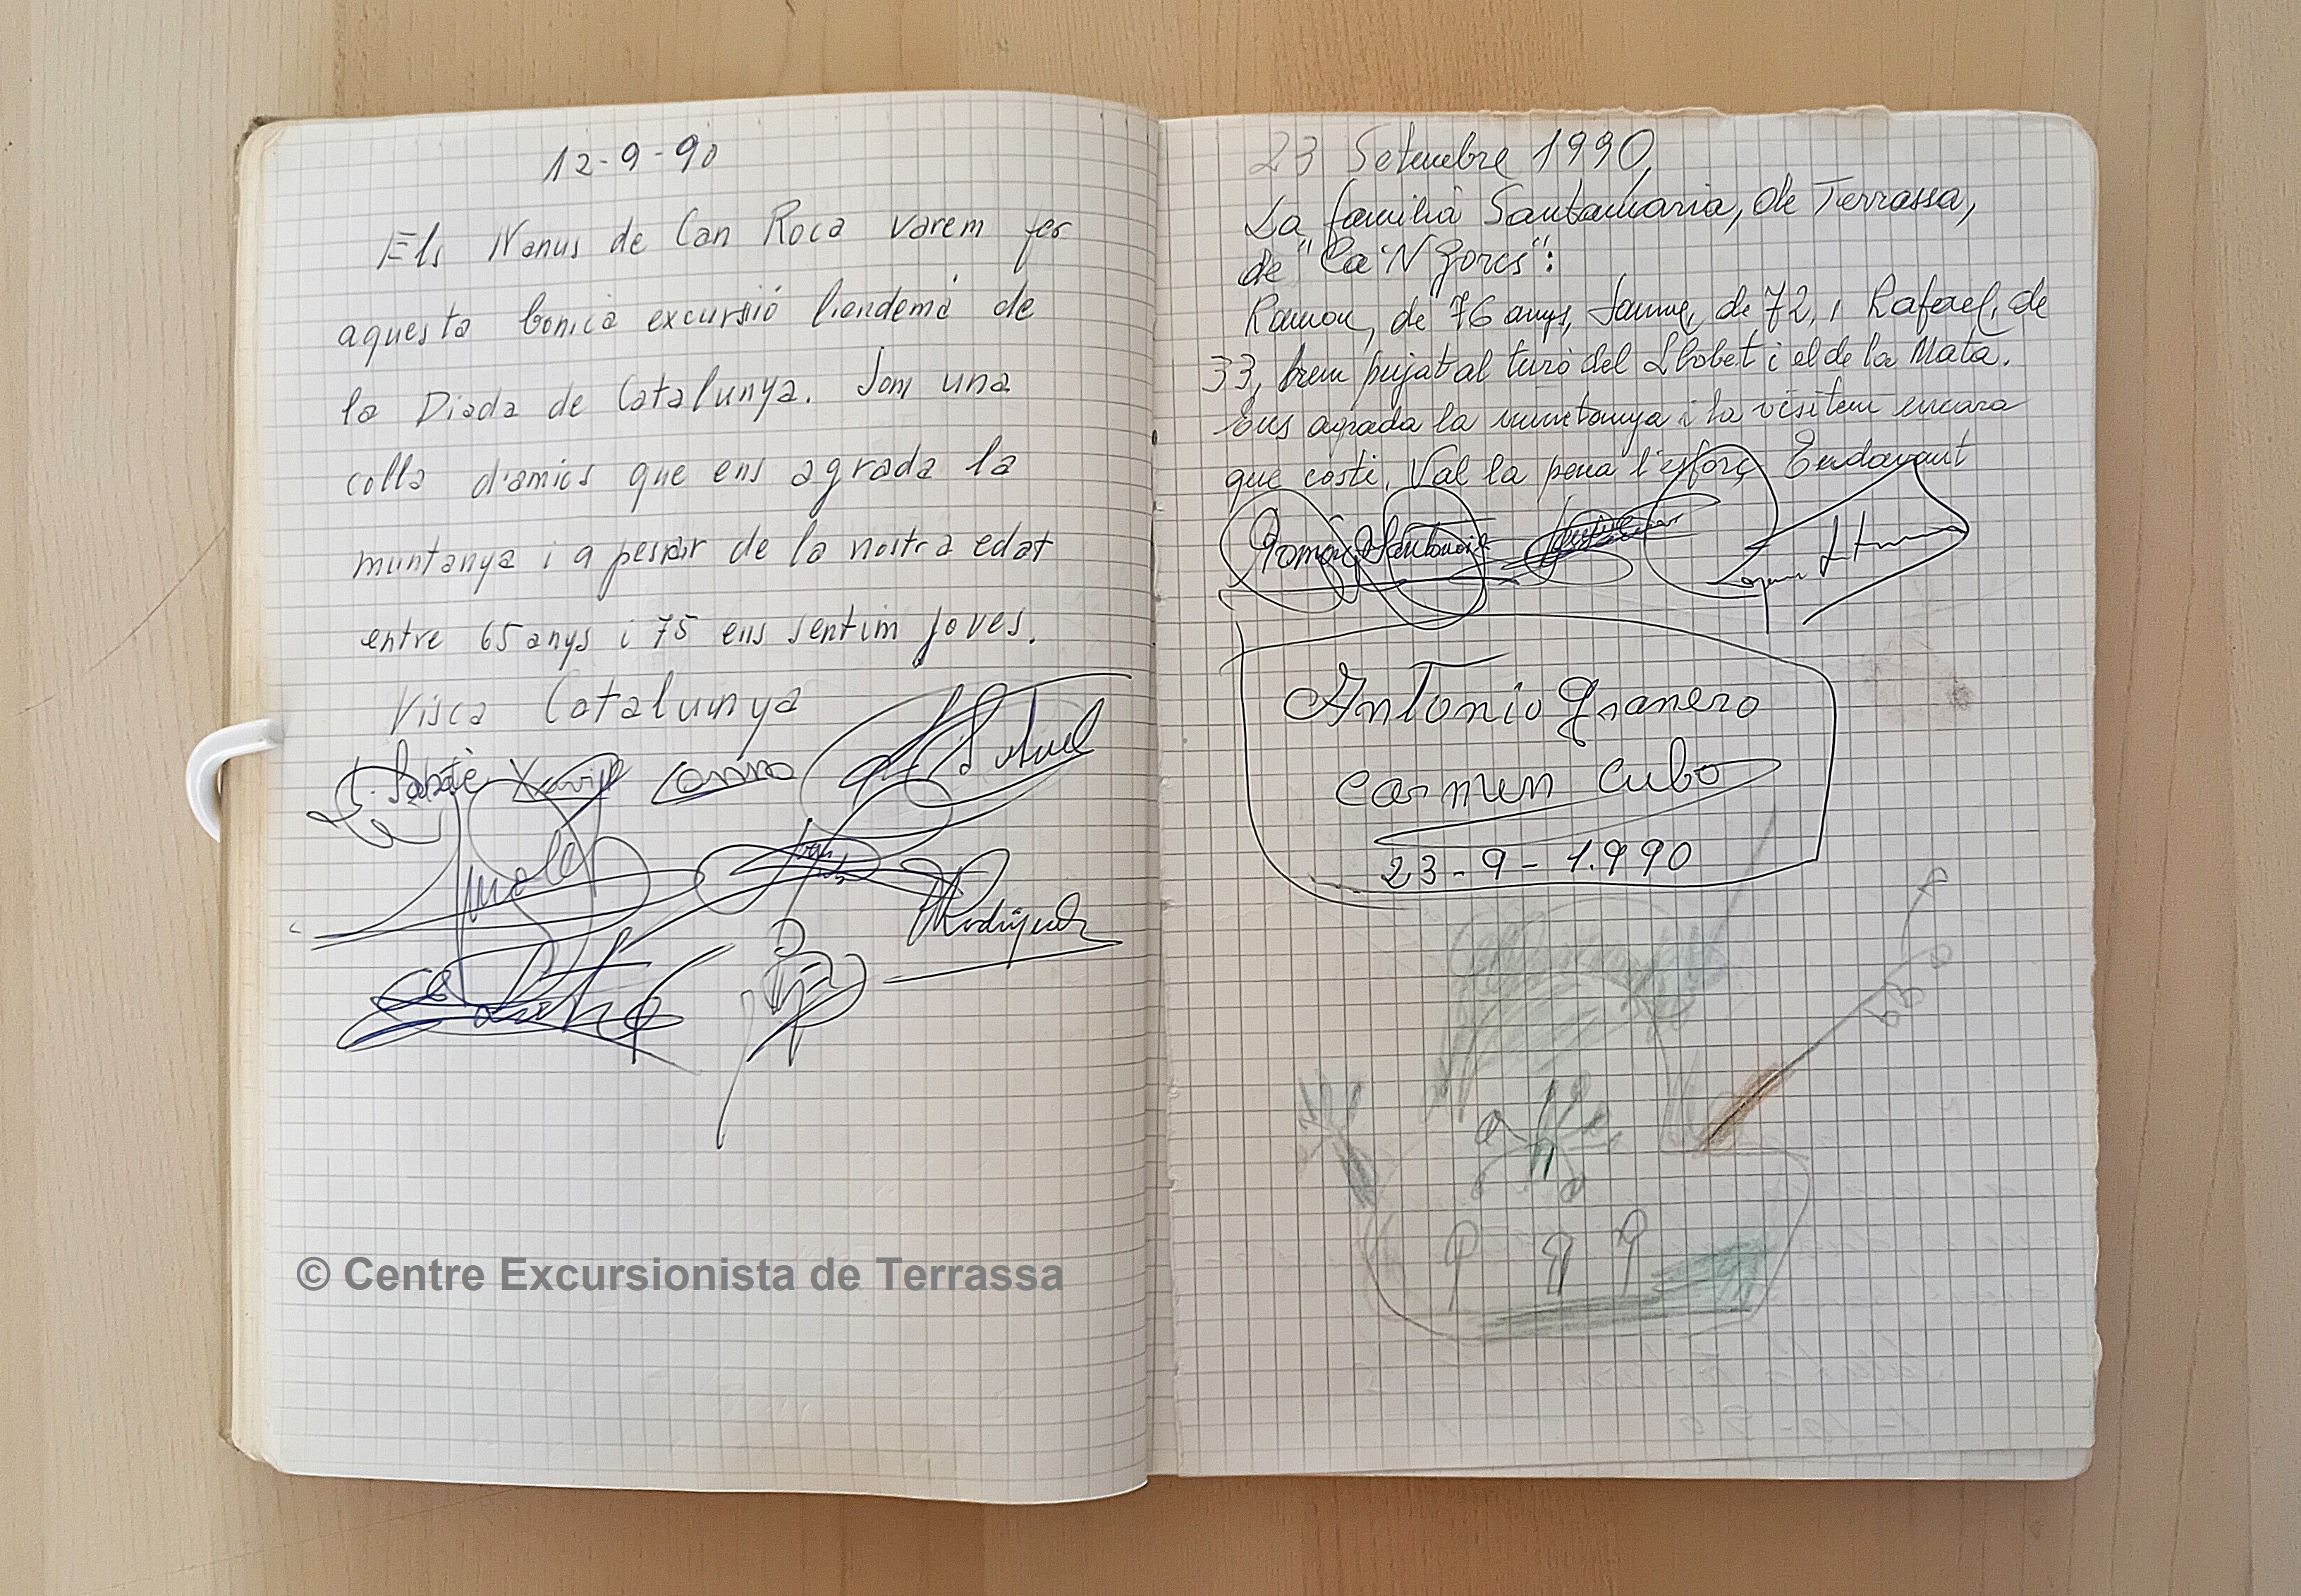 12-9-90
Els Nanus de Can Roca varem fer
aquesta bonica excursió l'endemá de
la Diada de Catalunya. Som una
colla d'amics que ens agrada la
muntanya i a pesar de la nostra edat
entre 65 anys i 75 ens sentim joves.
Visca Catalunya
Sabaté
Rodríguez
© Centre Excursionista de Terrassa
23 Setembre 1990,
La familia Santamaria, de Terrassa,
de "Ca'N Gorcs":
Ramon, de 76 anys, Jaume, de 72, i Rafael, de
33, hem pujat al turó del Llobet i el de la Mata.
Ens agrada la muntanya i la visitem encara
que costi. Val la pena l'esforç Endavant
Ramón Santamaria
Antonio Granero
Carmen Cubo
23-9-1.990